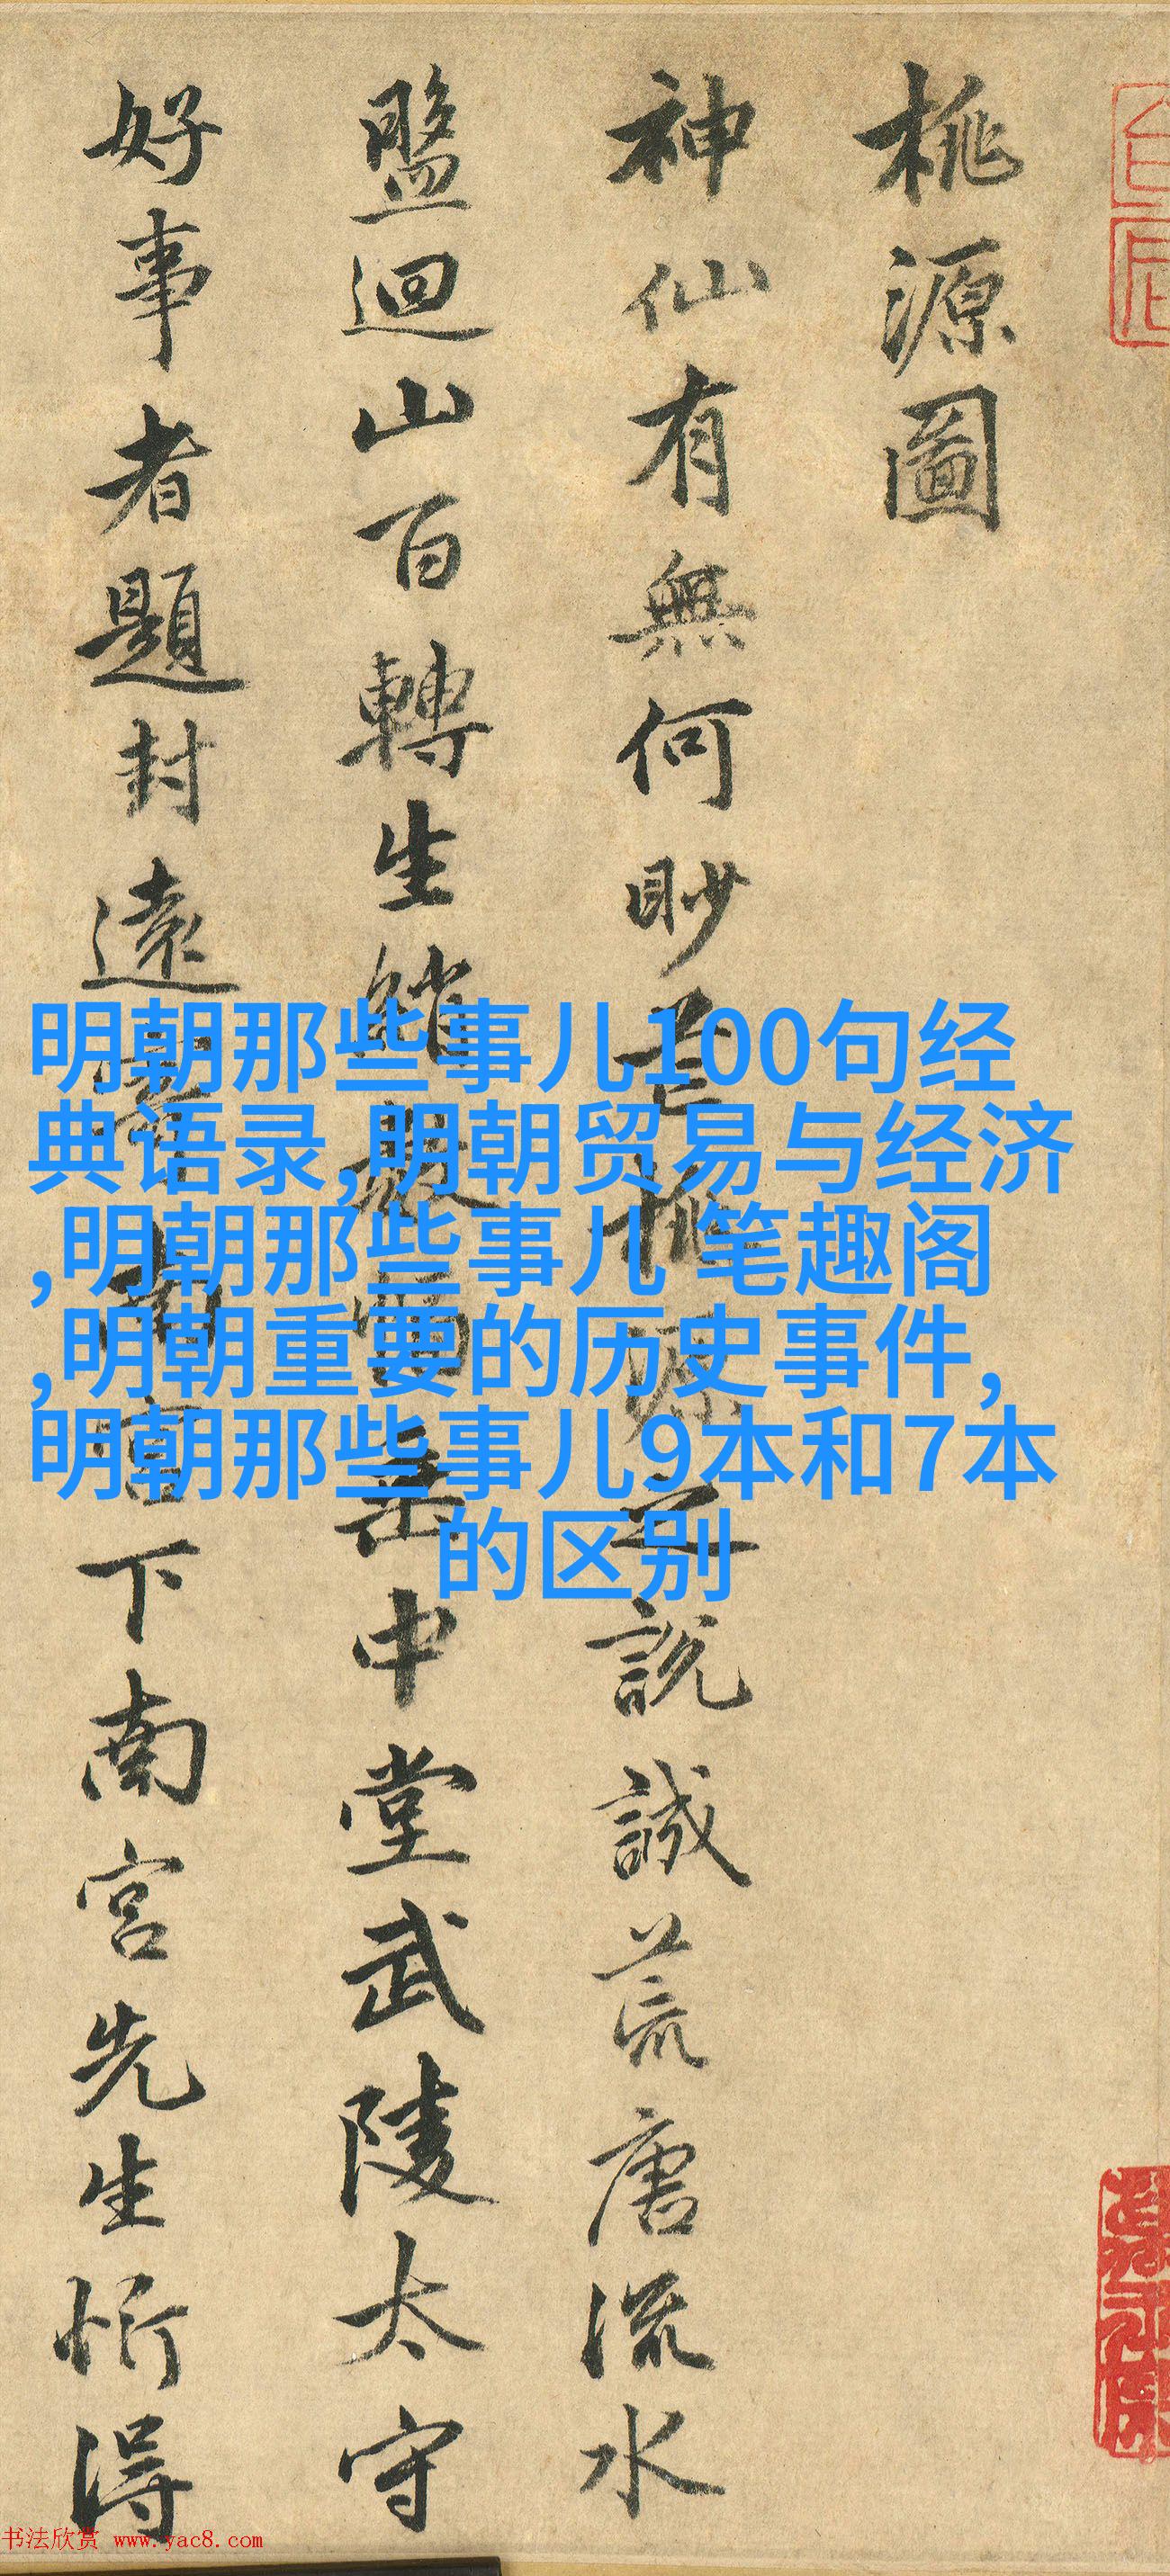 桃源圖
神仙有無何眇芒桃源之說誠荒唐流水
盤迴山百轉生綃數幅垂中堂武陵太守
好事者題封遠寄南宮下南宮先生忻得
明朝那些事儿100句经
典语录,明朝贸易与经济
,明朝那些事儿 笔趣阁
,明朝重要的历史事件,
明朝那些事儿9本和7本
的区别
书法欣赏 www.yac8.com